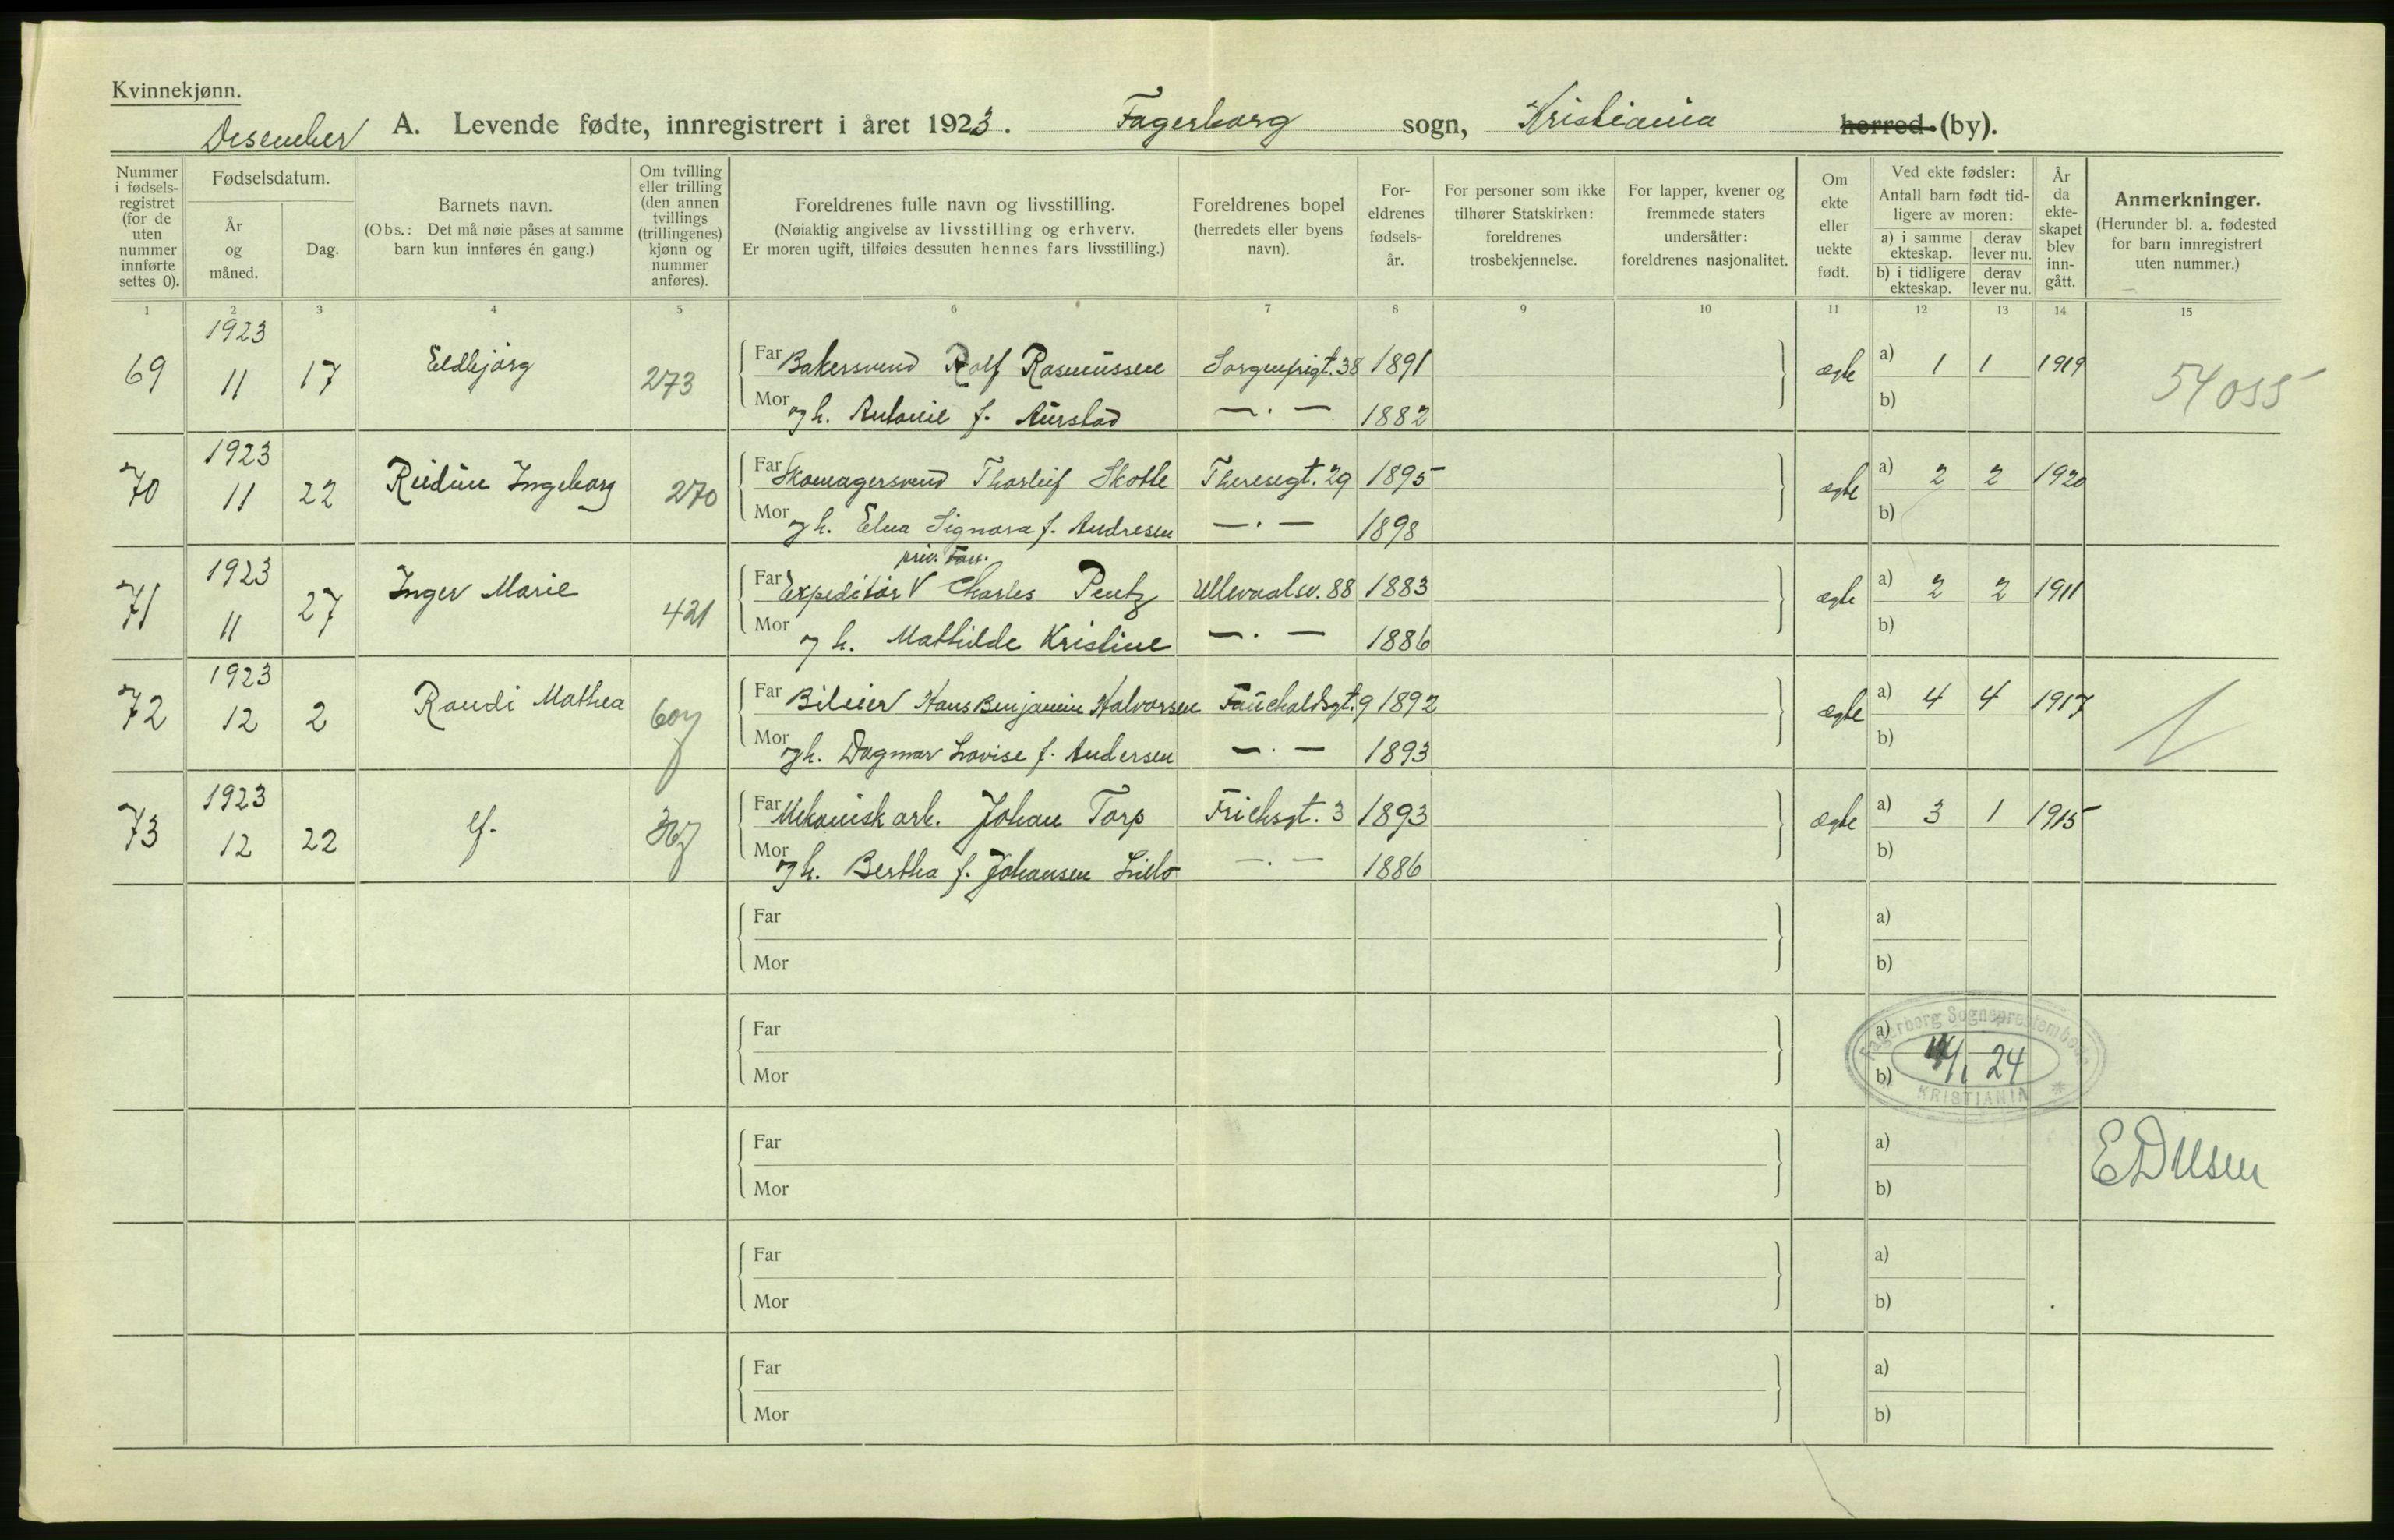 Kvinnekjønn.
Desember A. Levende fødte, innregistrert i året 1923. Fagerborg sogn, Kristiania herred (by).
Nummer i fødsels-registret (for de uten nummer innførte settes 0).
Fødselsdatum.
År og måned.
Dag.
Barnets navn.
(Obs.: Det må nøie påses at samme barn kun innføres én gang.)
Om tvilling eller trilling (den annen tvillings (trillingenes) kjønn og nummer anføres).
Foreldrenes fulle navn og livsstilling.
(Nøiaktig angivelse av livsstilling og erhverv.
Er moren ugift, tilføies dessuten hennes fars livsstilling.)
Foreldrenes bopel (herredets eller byens navn).
For-eldrenes fødsels-år.
For personer som ikke tilhører Statskirken: foreldrenes trosbekjennelse.
For lapper, kvener og fremmede staters undersåtter: foreldrenes nasjonalitet.
Om ekte eller uekte født.
Ved ekte fødsler:
Antall barn født tid-ligere av moren:
a) i samme ekteskap. derav lever nu.
b) i tidligere ekteskap. derav lever nu.
År da ekte-skapet blev inn-gått.
Anmerkninger.
(Herunder bl. a. fødested for barn innregistrert uten nummer.)
1 2 3 4 5 6 7 8 9 10 11 12 13 14 15
69 1923 11 17 Eldbjørg 273 Far Bakersvend Rolf Rasmussen Sorgenfrigt. 38 1891 ægte a) 1 1 1919 54055
Mor og h. Antonie f. Aurstad — . — 1882 b)
70 1923 11 22 Reidun Ingeborg 270 Far Skomagersvend Thorleif Skotte Theresegt. 29 1895 ægte a) 2 2 1920
Mor og h. Elna Signora f. Andresen — . — 1898 b)
priv.
71 1923 11 27 Inger Marie 421 Far Expeditør V Charles Pentz Ullevaalsv. 88 1883 ægte a) 2 2 1911
Mor og h. Mathilde Kristine — . — 1886 b)
72 1923 12 2 Randi Mathea 607 Far Bileier Hans Benjamin Halvorsen Fauchaldsgt. 9 1892 ægte a) 4 4 1917
Mor og h. Dagmar Lovise f. Andersen — . — 1893 b)
73 1923 12 22 Far Mekanisk arb. Johan Torp Frichsgt. 3 1893 ægte a) 3 1 1915
Mor og h. Bertha f. Johansen — . — 1886 b)
Far a)
Mor b)
Far a)
Mor b)
Fagerborg Sogneprestembede
/1 24
KRISTIANIA
Far a)
Mor b)
Far a)
Mor b)
Far a)
Mor b)